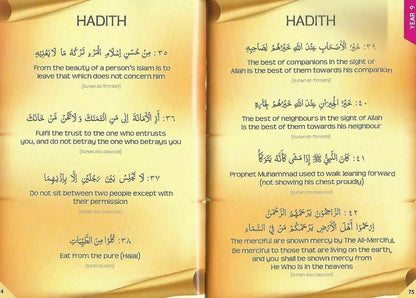 HADITH
٣٥: مِنْ حُسْنِ إِسْلَامِ الْمَرْءِ تَرْكُهُ مَا لَا يَعْنِيْهِ
From the beauty of a person's Islam is to
leave that which does not concern him
[Sunan At-Tirmithi]
٣٦: أَدِّ الْأَمَانَةَ إِلَى مَنِ ائْتَمَنَكَ وَلَا تَخُنْ مَنْ خَانَكَ
Fulfil the trust to the one who entrusts
you, and do not betray the one who betrays you
[Sunan Abu Dawood]
٣٧: لَا تَجْلِسْ بَيْنَ رَجُلَيْنِ إِلَّا بِإِذْنِهِمَا
Do not sit between two people except with
their permission
[Sunan Abu Dawood]
٣٨: كُلُوْا مِنَ الطَّيِّبَاتِ
Eat from the pure (Halal)
4
HADITH
YEAR 9
٣٩: خَيْرُ الْأَصْحَابِ عِنْدَ اللهِ خَيْرُهُمْ لِصَاحِبِهِ
The best of companions in the sight of
Allah is the best of them towards his companion
[Sunan At-Tirmithi]
٤٠: خَيْرُ الْجِيْرَانِ عِنْدَ اللهِ خَيْرُهُمْ لِجَارِهِ
The best of neighbours in the sight of Allah
is the best of them towards his neighbour
[Sunan At-Tirmithi]
٤١: كَانَ النَّبِيُّ ﷺ إِذَا مَشَى كَأَنَّهُ يَتَوَكَّأُ
Prophet Muhammad used to walk leaning forward
(not showing his chest proudly)
[Sunan Abu Dawood]
٤٢: الرَّاحِمُوْنَ يَرْحَمُهُمُ الرَّحْمٰنُ
اِرْحَمُوْا أَهْلَ الْأَرْضِ يَرْحَمْكُمْ مَنْ فِي السَّمَاءِ
The merciful are shown mercy by The All-Merciful.
Be merciful to those that are living on the earth,
and you shall be shown mercy from
He Who is in the heavens
[Sunan Abu Dawood]
75